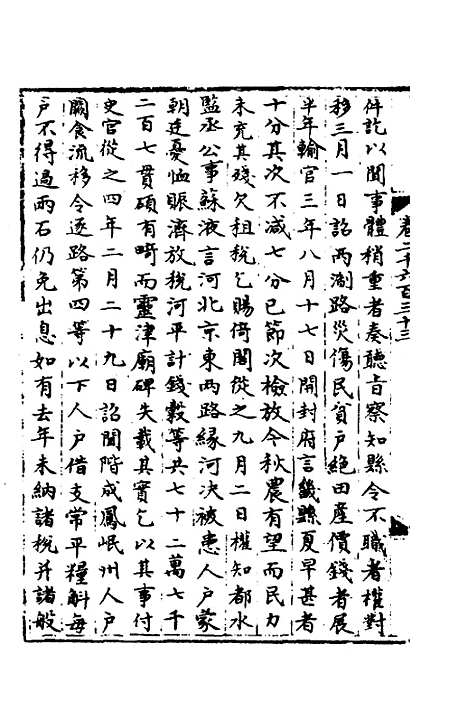 卷二千六百三十三
件訖以聞事體稍重者奏聽旨察知縣令不職者權對
移三月一日詔兩浙路災傷民貧戶絕田產價錢者展
半年輸官三年八月十七日開封府言畿縣夏旱甚者
十分其次不減七分已節次檢放今秋農有望而民力
未充其殘欠租稅乞賜倚閣從之九月二日權知都水
監丞公事蘇液言河北京東兩路緣河決被患人戶蒙
朝廷憂恤賑濟放稅河平計錢穀等共七十二萬七千
二百七貫碩有畸而靈津廟碑失載其實乞以其事付
史官從之四年二月二十九日詔聞階成鳳岷州人戶
闕食流移令逐路第四等以下人戶借支常平糧斛每
戶不得過兩石仍免出息如有去年未納諸稅并諸般